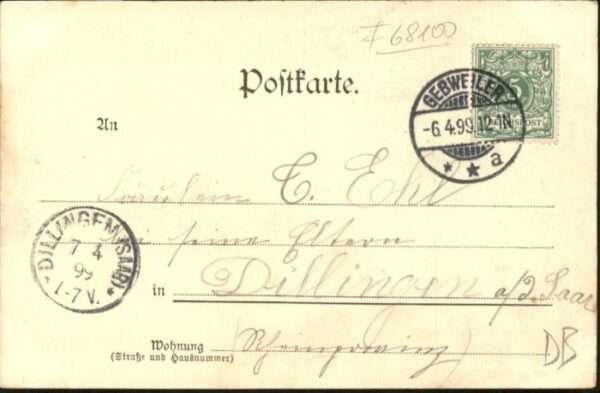 F 68100
Postkarte.
GEBWEILER
-6.4.99.12-1N
a
5
REICHSPOST
An
Fräulein C. Ehl
bei seine Eltern
DILLINGEN (SAAR)
7 4
99
1-7 V.
in Dillingen a/d. Saar
Wohnung (Rheinprovinz)
(Straße und Hausnummer)
DB